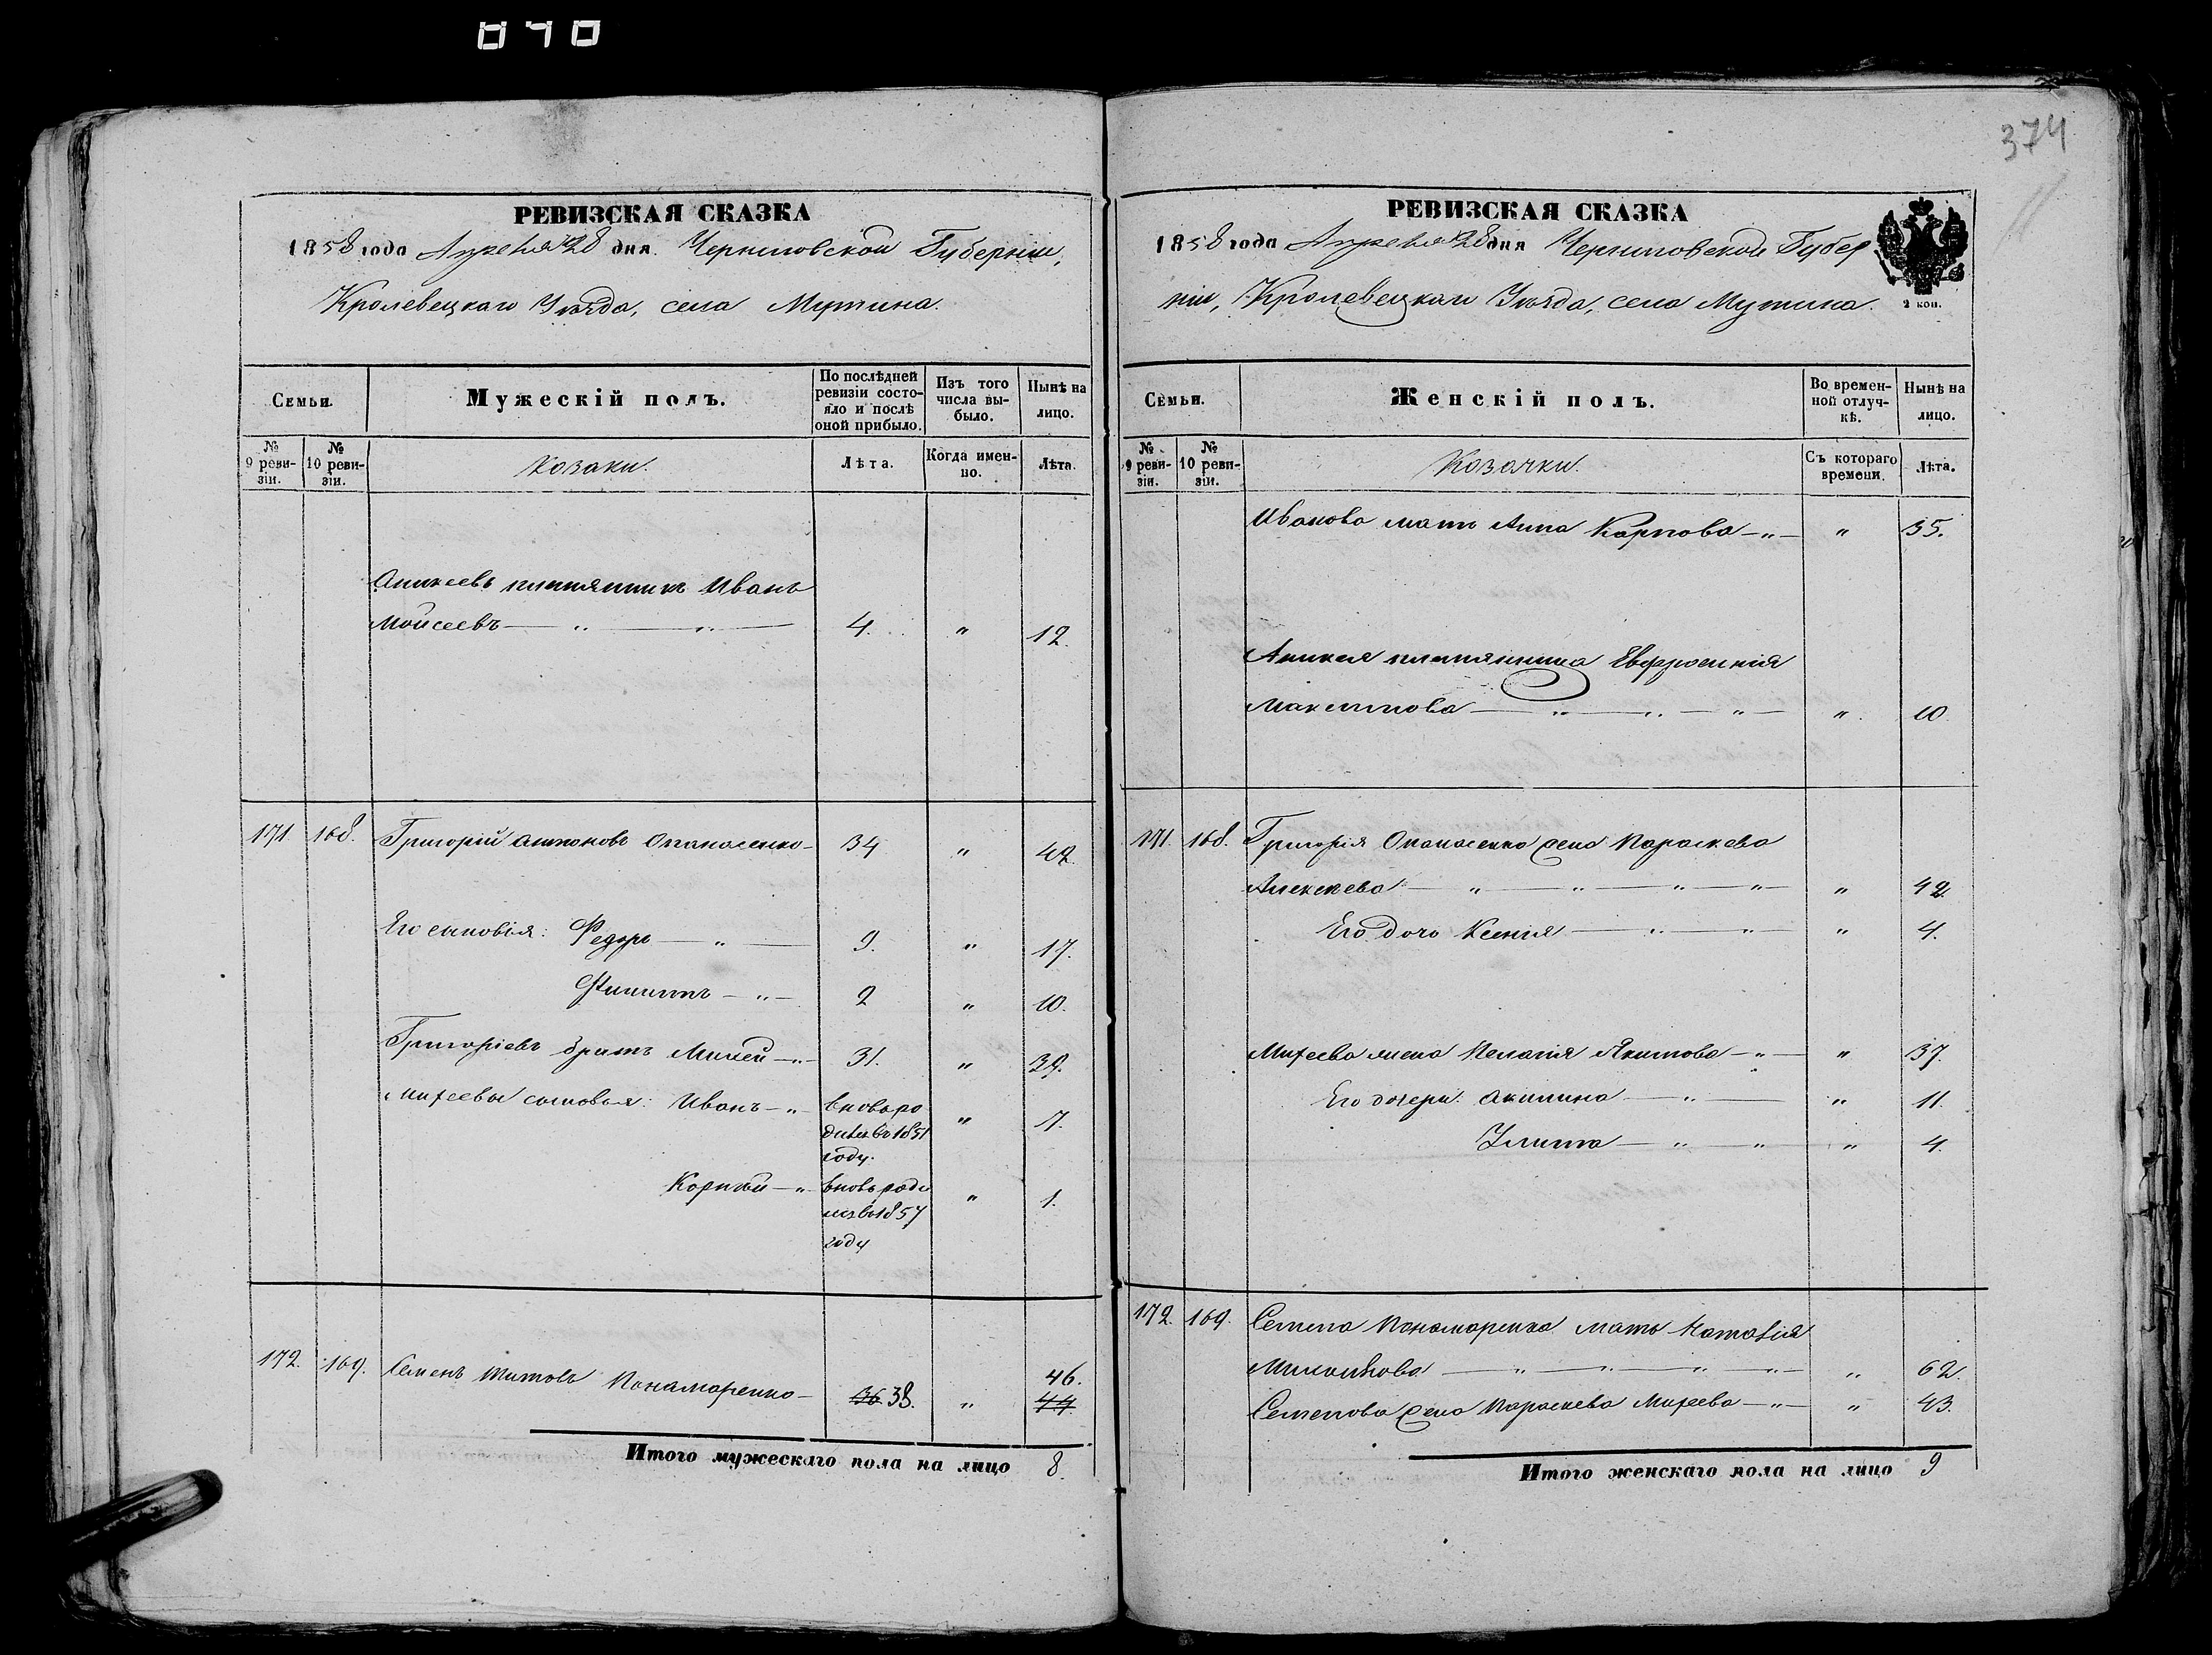 040
РЕВИЗСКАЯ СКАЗКА
1858 года Апреля 28 дня. Черниговской Губернии,
Кролевецкаго Уѣзда, села Мутина.
Семьи.
Мужескій полъ.
По послѣдней ревизіи состояло и послѣ оной прибыло.
Изъ того числа выбыло.
Нынѣ на лицо.
№ 9 ревизіи.
№ 10 ревизіи.
Козаки.
Лѣта.
Когда именно.
Лѣта.
Аникеевъ племянникъ Иванъ
Моисеевъ — „ — „ — 4. „ 12.
171 168. Григорій Антоновъ Опанасенко — 34 „ 42.
Его сыновія: Федоръ — „ — 9. „ 17.
Филиппъ — „ — 2 „ 10.
Григоріевъ братъ Михей — „ — 31. „ 39.
Михеевы сыновья: Иванъ — „ вновь ро
дился въ 1851
году. „ 7.
Корнѣй — „ вновь роди
лся въ 1857
году „ 1.
172. 169. Семенъ Титовъ Понамаренко — 36 38. „ 46.
44.
Итого мужескаго пола на лицо 8.
374
РЕВИЗСКАЯ СКАЗКА
1858 года Апреля 28 дня Черниговской Губер
ніи, Кролевецкаго Уѣзда, села Мутина.
2 коп.
Семьи.
Женскій полъ.
Во временной отлучкѣ.
Нынѣ на лицо.
№ 9 ревизіи.
№ 10 ревизіи.
Козачки.
Съ котораго времени.
Лѣта.
Иванова мать Анна Карпова — „ — „ 35.
Аникея племянница Евфросинія
Максимова — „ — „ — „ — „. 10.
171. 168. Григорія Опанасенка жена Параскева
Алексѣева — „ — „ — „ — „ — „ 42.
Его дочь Ксенія — „ — „ „ 4.
Михеева жена Пелагія Якимова — „ — „ 37.
Его дочери: Акилина — „ — „ 11.
Улита — „ — „ „ 4.
172. 169. Семена Понамаренка мать Наталія
— „ — „ — „ — „ — „ 62.
Семенова жена Параскева Михеева — „ — „ 43.
Итого женскаго пола на лицо 9